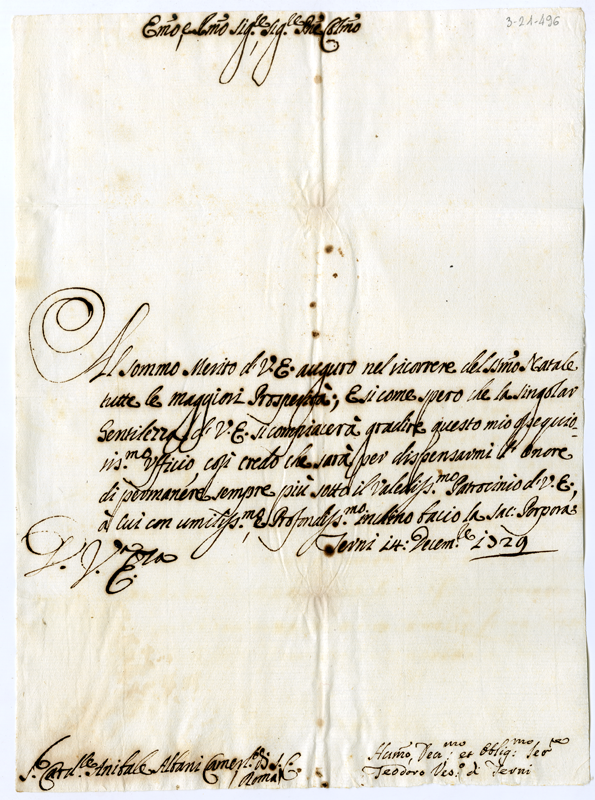 3-21-496
Emo e Rmo Sig.re Sig.re Pne Colmo
Al sommo Merito d. V. E. auguro nel ricorrere del SSmo Natale
tutte le maggiori Prosperità; E si come spero che la singolar
Gentilezza d. V. E. si compiacerà gradire questo mio ossequio-
sis.mo Ufficio così credo che sarà per dispensarmi l' onore
di permanere sempre più sotto il Valediss.mo Patrocinio d. V. E.,
à cui con umiliss.mo, e Profondiss.mo inchino bacio la Sac. Porpora.
Terni 14: Decem.re 1729
D. V. Eza
S. Card.le Anibale Albani Camerl. di S. C.
(Roma)
Humo, Devmo: et Obligmo: Serre
Teodoro Ves.o di Terni